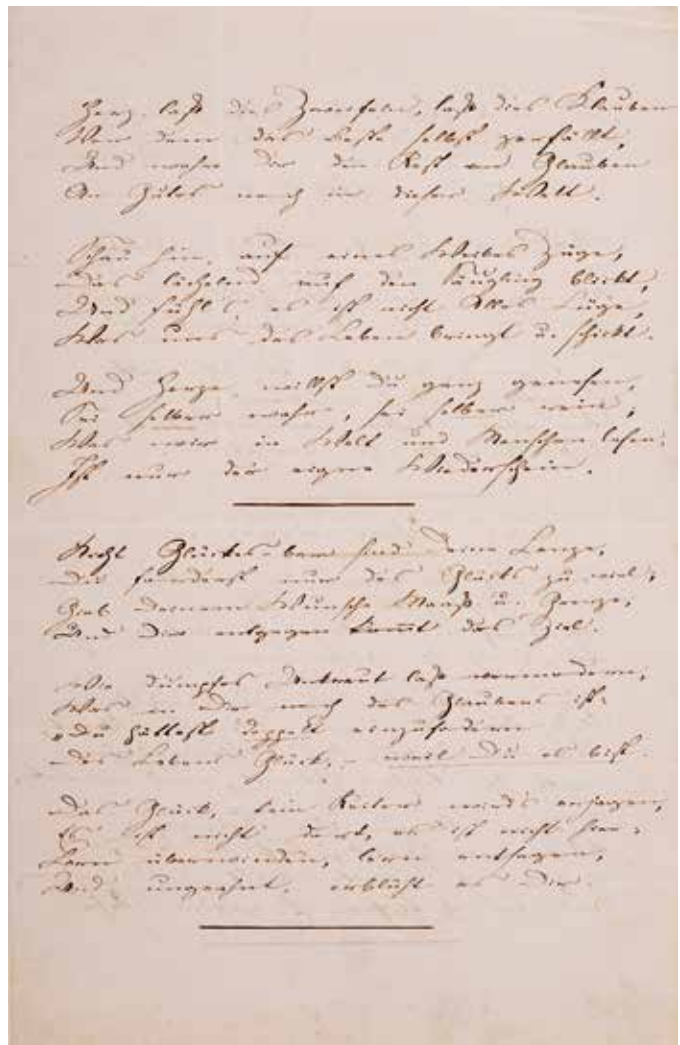 Herz, laß dies Zweifeln, laß dies Klauben
Vor dem das Beste selbst zerfällt,
Und wahre dir den Rest von Glauben
An Gutes noch in dieser Welt.
Schau hin auf eines Weibes Züge,
Das lächelnd auf den Säugling blickt,
Und fühl's, es ist nicht Alles Lüge,
Was uns das Leben bringt u. schickt.
Und Herze, willst du ganz genesen,
Sei selber wahr, sei selber rein,
Was wir in Welt und Menschen lesen,
Ist nur der eigne Wiederschein.
Nicht Glückes-baar sind Deine Lenze,
Du forderst nur des Glücks zu viel;
Gieb Deinem Wunsche Maaß u. Grenze,
Und Dir entgegen kommt das Ziel.
Wie dumpfes Unkraut laß vermodern,
Was in Dir noch des Glaubens ist:
Du hättest doppelt einzufodern
Des Lebens Glück, – weil Du es bist.
Das Glück, kein Reiter wird's erjagen,
Es ist nicht dort, es ist nicht hier,
Lern überwinden, lern entsagen,
Und ungeahnt, erblüht es Dir.